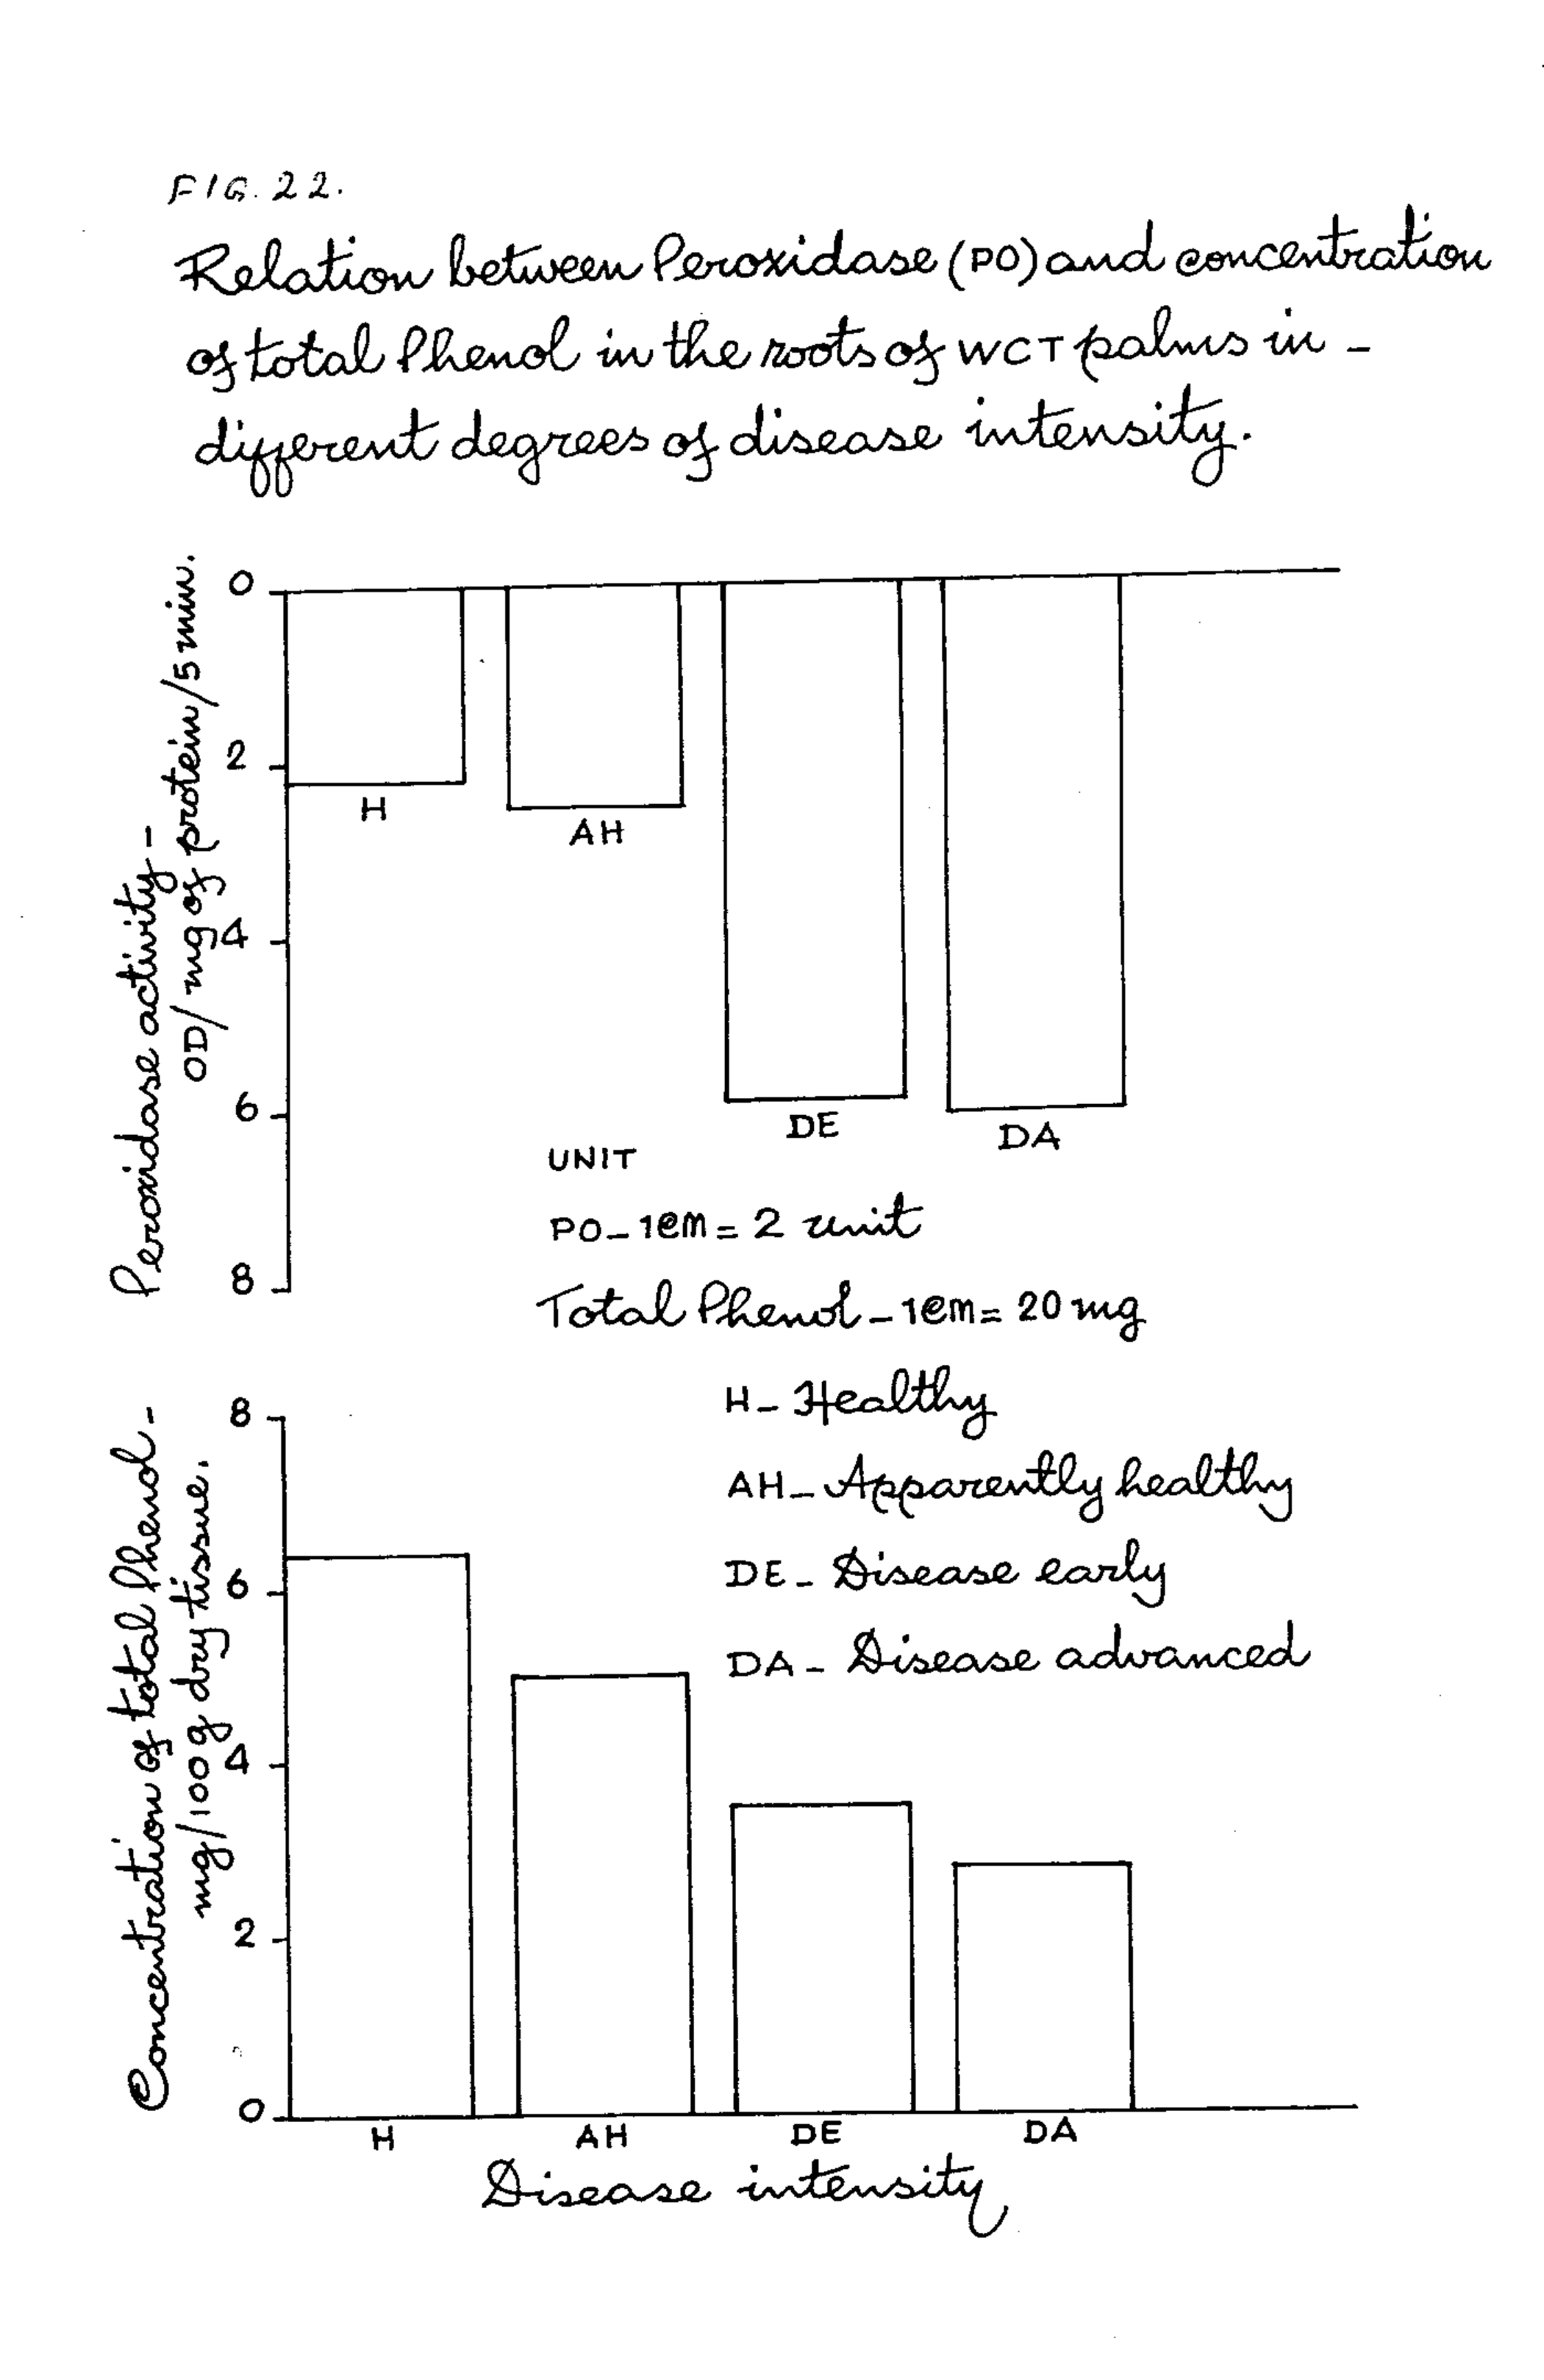 FIG. 22.
Relation between Peroxidase (PO) and concentration
of total Phenol in the roots of WCT palms in -
different degrees of disease intensity.
Peroxidase activity -
OD/mg of protein/5 min.
0
2
4
6
8
H
AH
DE
DA
UNIT
PO - 1cm = 2 unit
Total Phenol - 1cm = 20 mg
H - Healthy
AH - Apparently healthy
DE - Disease early
DA - Disease advanced
Concentration of total Phenol -
mg/100 g dry tissue.
8
6
4
2
0
H
AH
DE
DA
Disease intensity